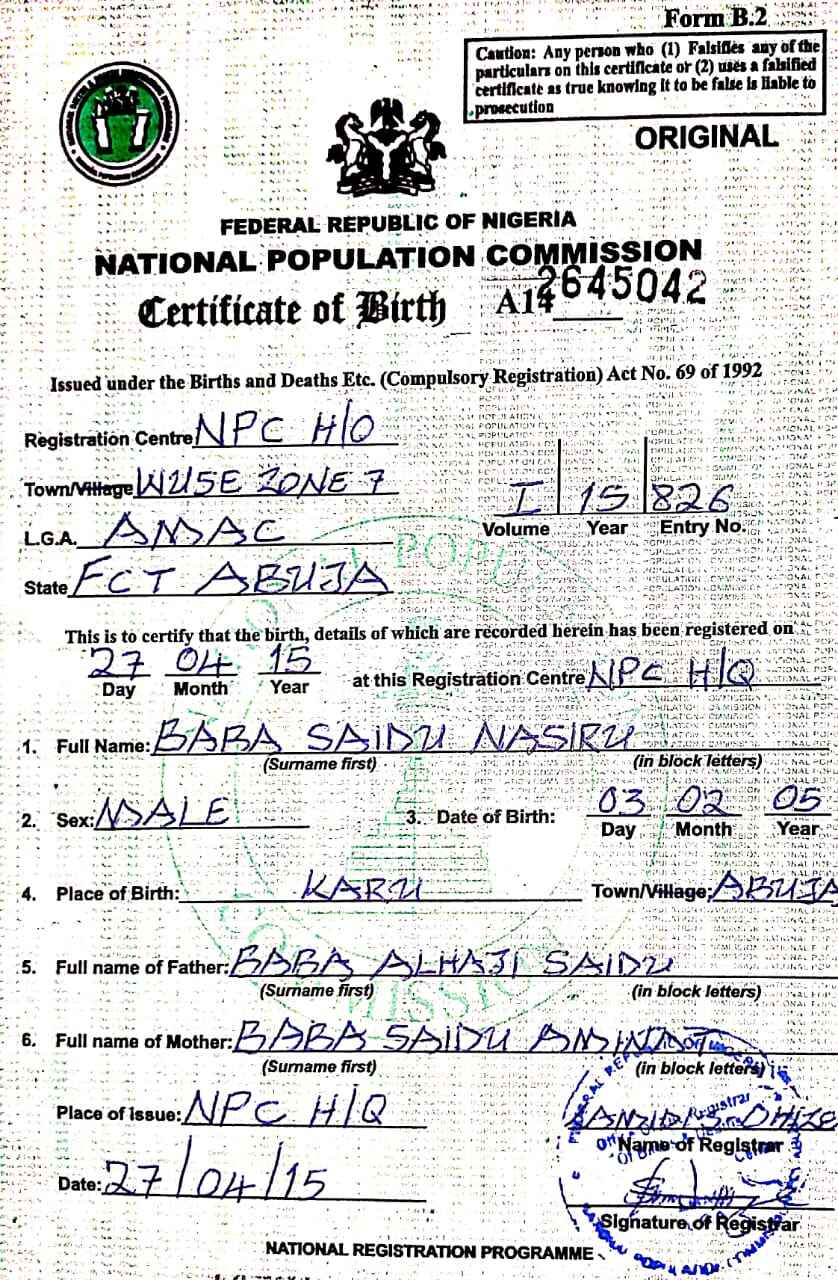 Form B.2
Caution: Any person who (1) Falsifies any of the
particulars on this certificate or (2) uses a falsified
certificate as true knowing it to be false is liable to
prosecution
ORIGINAL
FEDERAL REPUBLIC OF NIGERIA
NATIONAL POPULATION COMMISSION
Certificate of Birth A14 2645042
Issued under the Births and Deaths Etc. (Compulsory Registration) Act No. 69 of 1992
Registration Centre NPC H/Q
Town/Village WUSE ZONE 7
I 15 826
Volume Year Entry No.
L.G.A. AMAC
State FCT ABUJA
This is to certify that the birth, details of which are recorded herein has been registered on
27 04 15 at this Registration Centre NPC H/Q
Day Month Year
1. Full Name: BABA SAIDU NASIRU
(Surname first) (in block letters)
2. Sex: MALE 3. Date of Birth: 03 02 05
Day Month Year
4. Place of Birth: KARU Town/Village: ABUJA
5. Full name of Father: BABA ALHAJI SAIDU
(Surname first) (in block letters)
6. Full name of Mother: BABA SAIDU AMINAT
(Surname first) (in block letters)
Place of Issue: NPC H/Q
Name of Registrar
Date: 27/04/15
Signature of Registrar
NATIONAL REGISTRATION PROGRAMME